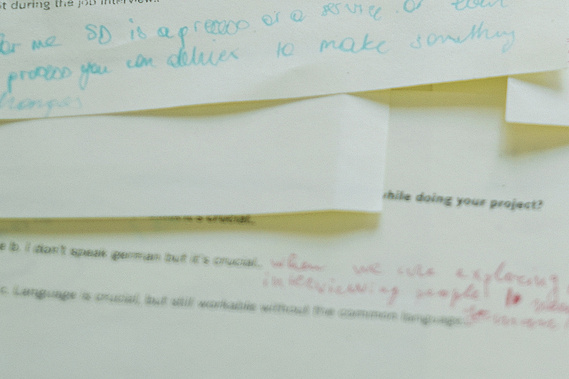 t during the job interview.
for me SD is a process or a service or
process you can deliver to make something
changes
while doing your project?
is a crucial.
b. I don't speak german but it's crucial. when we are exploring
interviewing people
c. Language is crucial, but still workable without the common language.